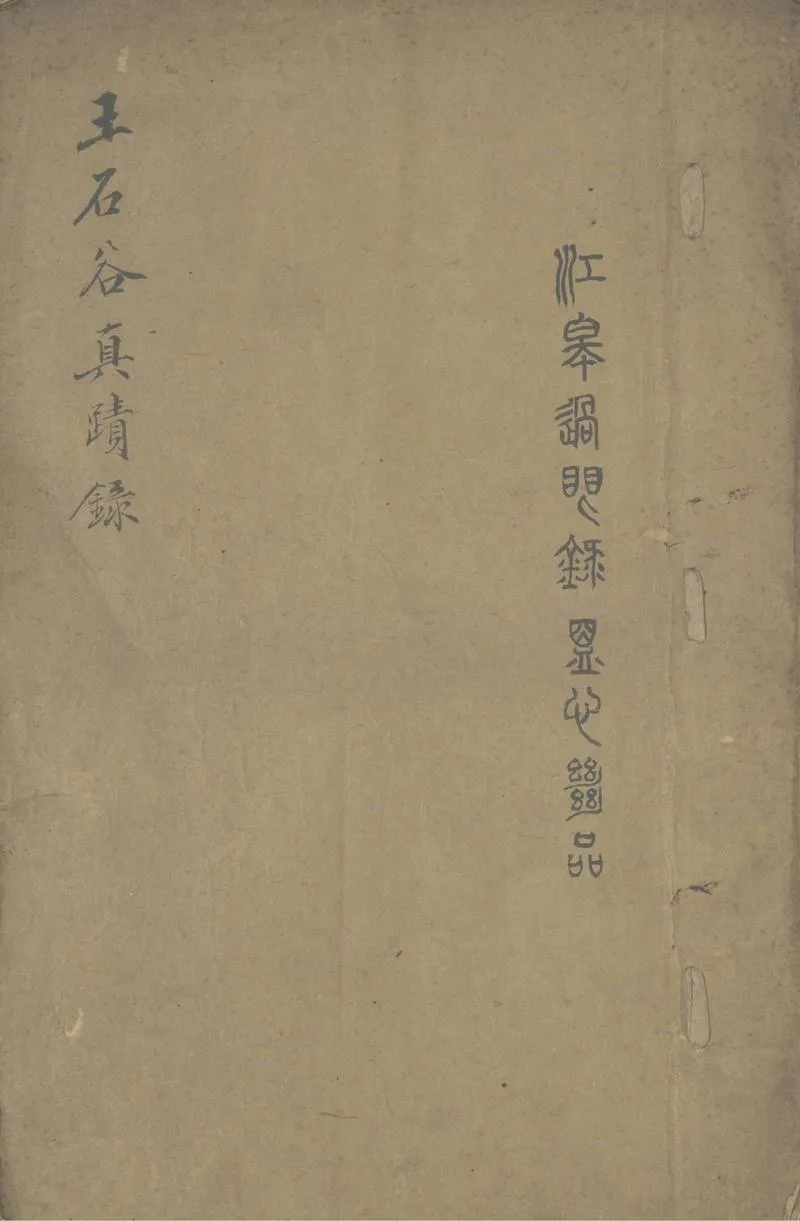 江皋過眼錄 心絕品
王石谷真蹟錄